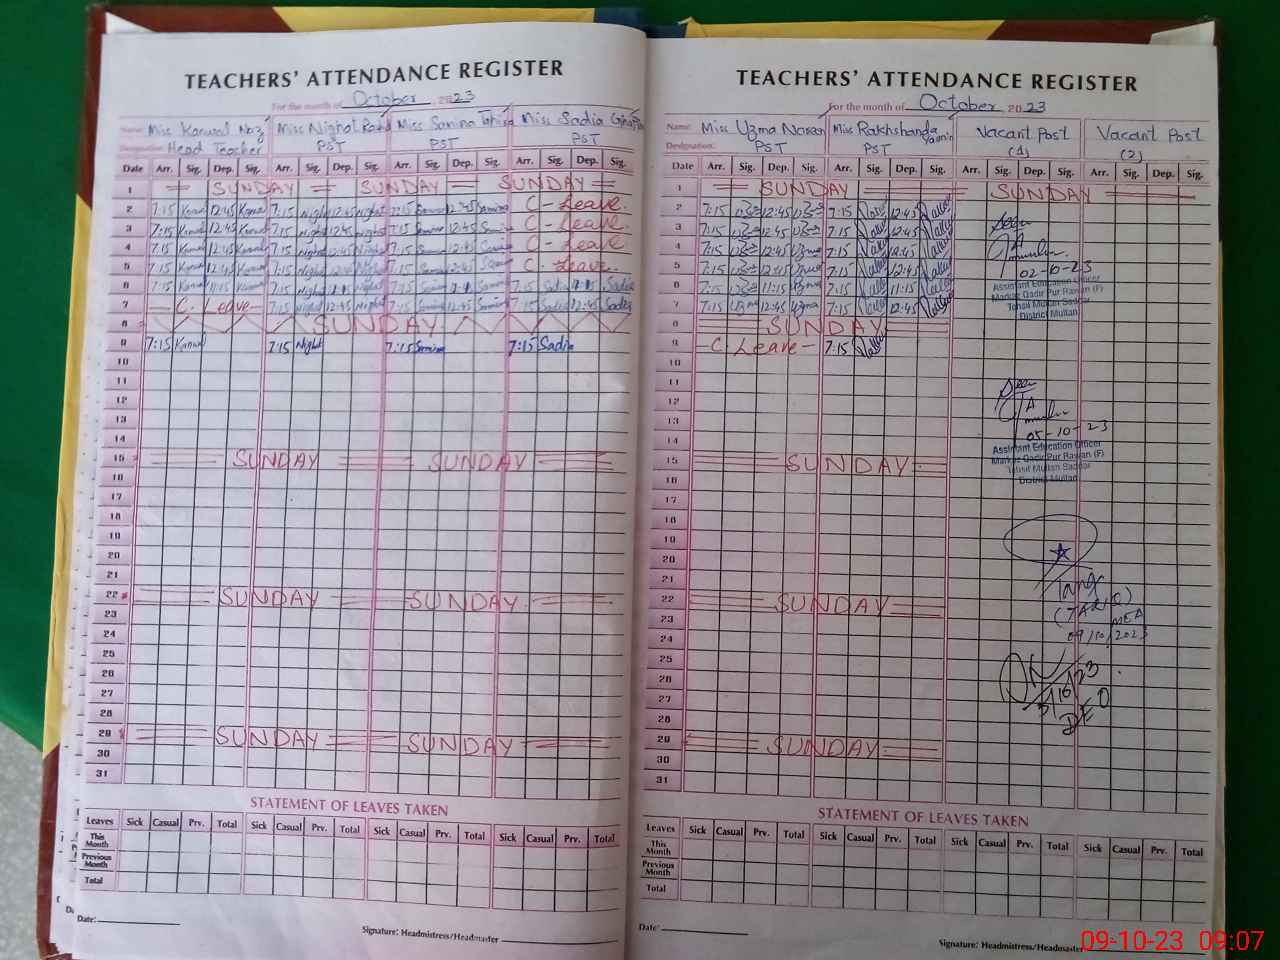 TEACHERS' ATTENDANCE REGISTER
For the month of October 2023
Name: Miss Kanwal Miss Nighat Miss Samina Tahira Miss Sadia
Designation: Head Teacher PST PST PST
Date Arr. Sig. Dep. Sig. Arr. Sig. Dep. Sig. Arr. Sig. Dep. Sig. Arr. Sig. Dep. Sig.
1 SUNDAY SUNDAY SUNDAY
2 7:15 Kanwal 12:45 Kanwal 7:15 Nighat 12:45 Nighat 7:15 Samina 12:45 Samina C - Leave.
3 7:15 Kanwal 12:45 Kanwal 7:15 Nighat 12:45 Nighat 7:15 Samina 12:45 Samina C - Leave
4 7:15 Kanwal 12:45 Kanwal 7:15 Nighat 12:45 Nighat 7:15 Samina 12:45 Samina C - Leave
5 7:15 Kanwal 12:45 Kanwal 7:15 Nighat 12:45 Nighat 7:15 Samina 12:45 Samina C. Leave.
6 7:15 Kanwal 11:15 Kanwal 7:15 Nighat 11:15 Nighat 7:15 Samina 11:15 Samina 7:15 Sadia 11:15 Sadia
7 C. Leave 7:15 Nighat 12:45 Nighat 7:15 Samina 12:45 Samina 7:15 Sadia 12:45 Sadia
8 SUNDAY
9 7:15 Kanwal 7:15 Nighat 7:15 Samina 7:15 Sadia
10
11
12
13
14
15 SUNDAY SUNDAY
16
17
18
19
20
21
22 SUNDAY SUNDAY
23
24
25
26
27
28
29 SUNDAY SUNDAY
30
31
STATEMENT OF LEAVES TAKEN
Leaves Sick Casual Prv. Total Sick Casual Prv. Total Sick Casual Prv. Total Sick Casual Prv. Total
This Month
Previous Month
Total
Date:
Signature: Headmistress/Headmaster
TEACHERS' ATTENDANCE REGISTER
For the month of October 2023
Name: Miss Uzma Miss Rakhshanda Yasmin Vacant Post Vacant Post
Designation: PST PST (1) (2)
Date Arr. Sig. Dep. Sig. Arr. Sig. Dep. Sig. Arr. Sig. Dep. Sig. Arr. Sig. Dep. Sig.
1 SUNDAY SUNDAY
2 7:15 12:45 7:15 12:45
3 7:15 12:45 7:15 12:45
4 7:15 12:45 7:15 12:45
5 7:15 12:45 7:15 12:45
6 7:15 11:15 7:15 11:15
7 7:15 Uzma 12:45 Uzma 7:15 12:45
8 SUNDAY
9 C Leave 7:15
10
11
12
13
14
15 SUNDAY
16
17
18
19
20
21
22 SUNDAY
23
24
25
26
27
28
29 SUNDAY
30
31
Seen
02-10-23
Assistant Education Officer
Markaz Qadir Pur Rawan (F)
Tehsil Multan Saddar
District Multan
Seen
05-10-23
Assistant Education Officer
Markaz Qadir Pur Rawan (F)
Tehsil Multan Saddar
District Multan
Tariq
(TARIQ)
MEA
09/10/2023
DEO
STATEMENT OF LEAVES TAKEN
Leaves Sick Casual Prv. Total Sick Casual Prv. Total Sick Casual Prv. Total Sick Casual Prv. Total
This Month
Previous Month
Total
Date:
Signature: Headmistress/Headmaster
09-10-23 09:07